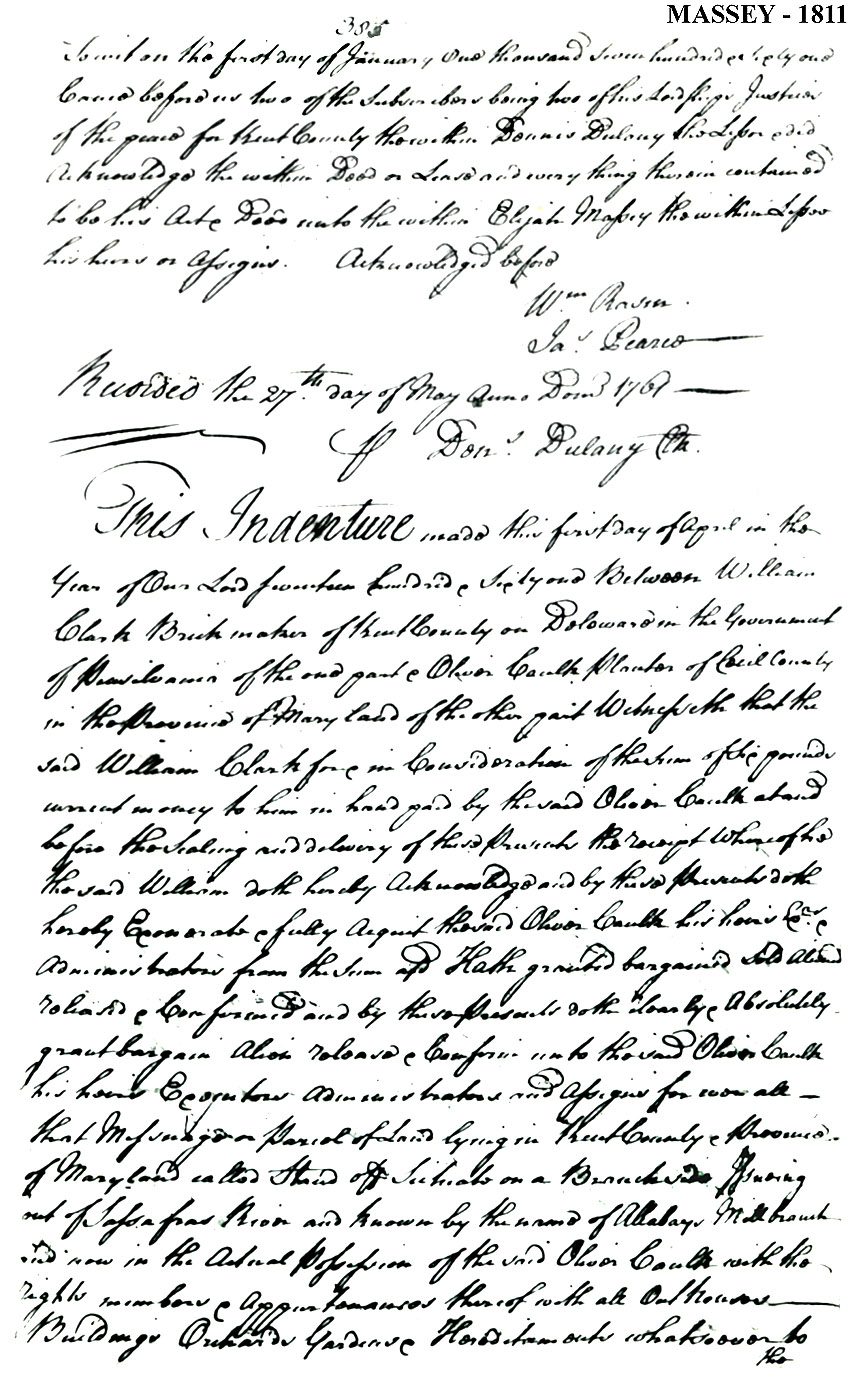 MASSEY - 1811
385
To wit on the first day of January One thousand seven hundred & sixty one
Came before us two of the Subscribers being two of his Lordships Justices
of the peace for Kent County the within Dennis Dulany the Lessor & did
Acknowledge the within Deed or Lease and every thing therein contained
to be his Act & Deed unto the within Elijah Massey the within Lessee
his heirs or Assigns. Acknowledged before
Wm Rasin.
Jas Pearce
Recorded the 27th day of May Anno Dom 1761
P Dens Dulany Clk.
This Indenture made this first day of April in the
Year of Our Lord Seventeen hundred & Sixty one Between William
Clark Brick maker of Kent County on Deloware in the Government
of Pensilvania of the one part & Oliver Caulk Planter of Cecil County
in the Province of Maryland of the other part Witnesseth that the
said William Clark for & in Consideration of the Sum of six pounds
current money to him in hand paid by the said Oliver Caulk at and
before the Sealing and delivery of these Presents the receipt Whereof he
the said William doth hereby Acknowledge and by these Presents doth
hereby Exonerate & fully Acquit the said Oliver Caulk his heirs Exrs &
Administrators from the Sum and Hath granted bargained Sold Aliend
released & Confirmed and by these Presents doth clearly & Absolutely
grant bargain Alien release & Confirm unto the said Oliver Caulk
his heirs Executors Administrators and Assigns for ever all
that Messuage or Parcel of Land lying in Kent County & Province
of Maryland called Stand off Scituate on a Branch side Issueing
out of Sassafras River and known by the name of Allabys Mill branch
and now in the Actual Possession of the said Oliver Caulk with the
rights members & Appurtenances thereof with all Outhouses
Buildings Orchards Gardens & Hereditaments whatsoever to
the